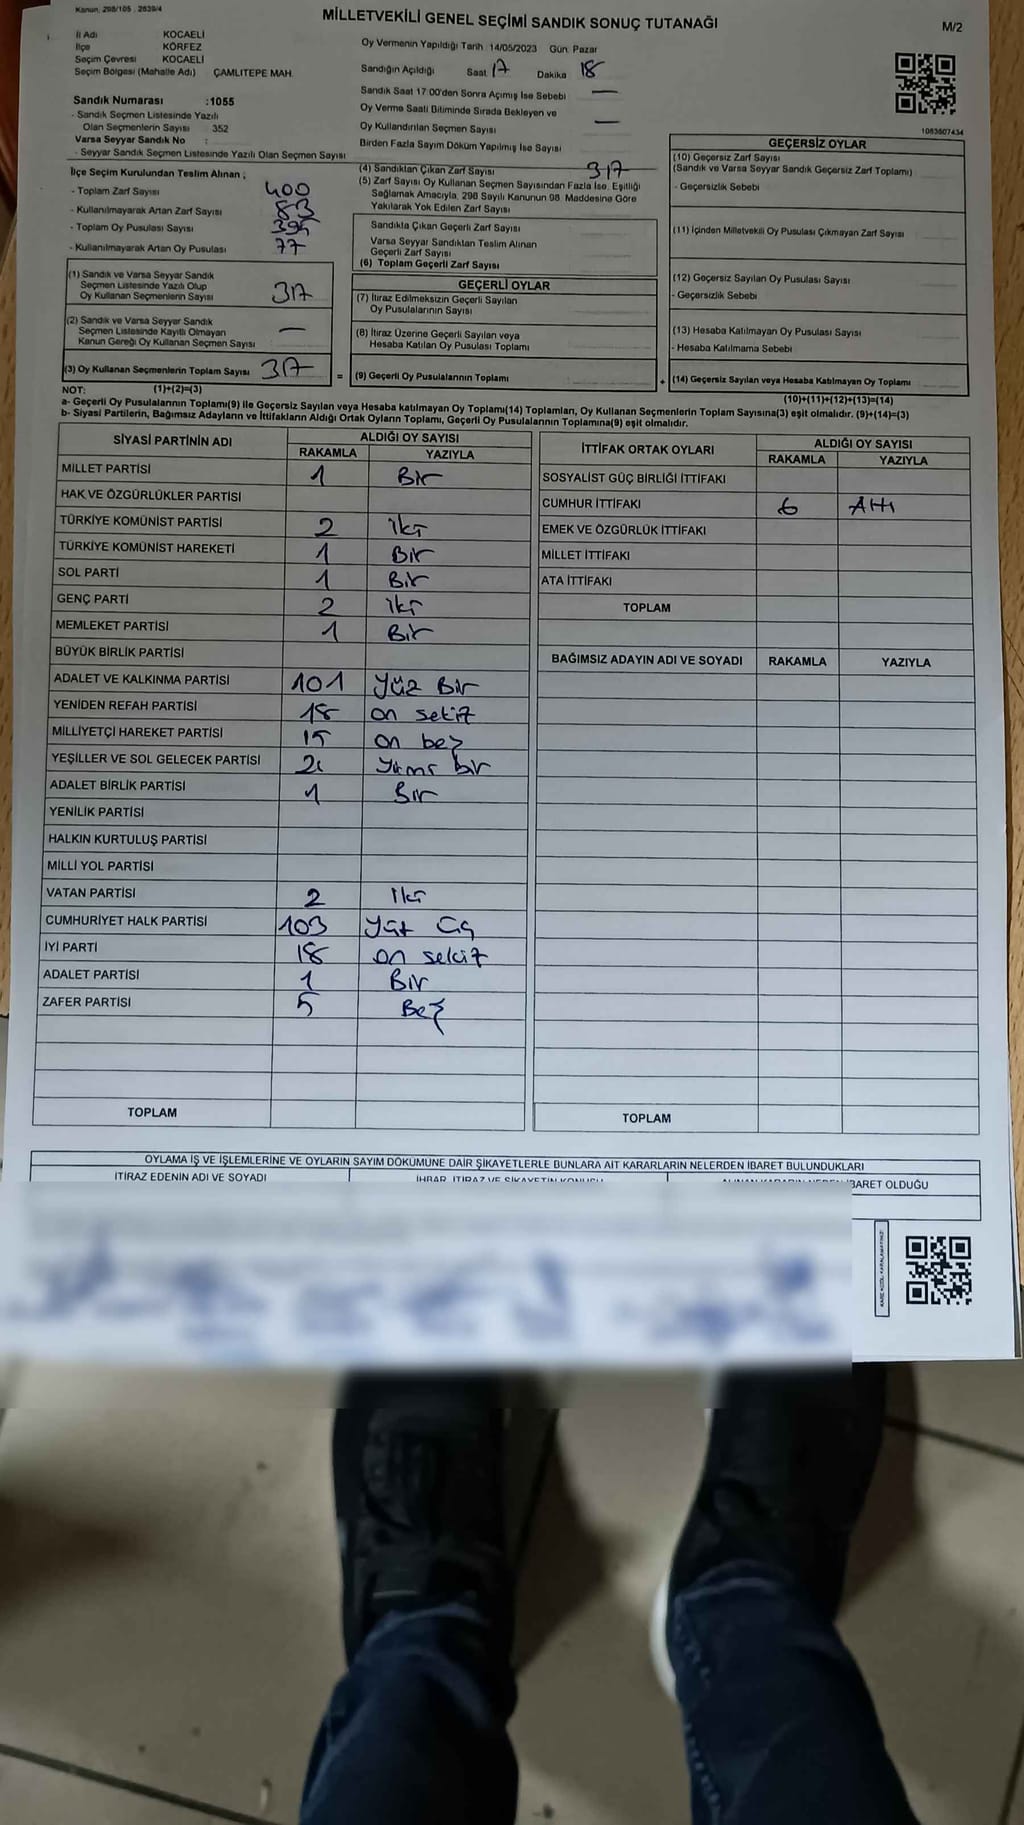 Kanun: 298/105 - 2839/4
MİLLETVEKİLİ GENEL SEÇİMİ SANDIK SONUÇ TUTANAĞI
M/2
İl Adı KOCAELİ
İlçe KÖRFEZ
Seçim Çevresi KOCAELİ
Seçim Bölgesi (Mahalle Adı) ÇAMLITEPE MAH.
Sandık Numarası :1055
- Sandık Seçmen Listesinde Yazılı
Olan Seçmenlerin Sayısı : 352
Varsa Seyyar Sandık No :
- Seyyar Sandık Seçmen Listesinde Yazılı Olan Seçmen Sayısı
Oy Vermenin Yapıldığı Tarih 14/05/2023 Gün: Pazar
Sandığın Açıldığı Saat 17 Dakika 18
Sandık Saat 17:00'den Sonra Açımış İse Sebebi —
Oy Verme Saati Bitiminde Sırada Bekleyen ve
Oy Kullandırılan Seçmen Sayısı —
Birden Fazla Sayım Döküm Yapılmış İse Sayısı
1083807434
İlçe Seçim Kurulundan Teslim Alınan ;
- Toplam Zarf Sayısı 400
- Kullanılmayarak Artan Zarf Sayısı 83
- Toplam Oy Pusulası Sayısı 394
- Kullanılmayarak Artan Oy Pusulası 77
(1) Sandık ve Varsa Seyyar Sandık
Seçmen Listesinde Yazılı Olup
Oy Kullanan Seçmenlerin Sayısı 317
(2) Sandık ve Varsa Seyyar Sandık
Seçmen Listesinde Kayıtlı Olmayan
Kanun Gereği Oy Kullanan Seçmen Sayısı —
(3) Oy Kullanan Seçmenlerin Toplam Sayısı 317
(4) Sandıktan Çıkan Zarf Sayısı 317
(5) Zarf Sayısı Oy Kullanan Seçmen Sayısından Fazla İse, Eşitliği
Sağlamak Amacıyla, 298 Sayılı Kanunun 98. Maddesine Göre
Yakılarak Yok Edilen Zarf Sayısı
Sandıkta Çıkan Geçerli Zarf Sayısı
Varsa Seyyar Sandıktan Teslim Alınan
Geçerli Zarf Sayısı
(6) Toplam Geçerli Zarf Sayısı
GEÇERLİ OYLAR
(7) İtiraz Edilmeksizin Geçerli Sayılan
Oy Pusulalarının Sayısı
(8) İtiraz Üzerine Geçerli Sayılan veya
Hesaba Katılan Oy Pusulası Toplamı
= (9) Geçerli Oy Pusulalarının Toplamı
GEÇERSİZ OYLAR
(10) Geçersiz Zarf Sayısı
(Sandık ve Varsa Seyyar Sandık Geçersiz Zarf Toplamı)
- Geçersizlik Sebebi
(11) İçinden Milletvekili Oy Pusulası Çıkmayan Zarf Sayısı
(12) Geçersiz Sayılan Oy Pusulası Sayısı
- Geçersizlik Sebebi
(13) Hesaba Katılmayan Oy Pusulası Sayısı
- Hesaba Katılmama Sebebi
+ (14) Geçersiz Sayılan veya Hesaba Katılmayan Oy Toplamı
NOT: (1)+(2)=(3)
(10)+(11)+(12)+(13)=(14)
a- Geçerli Oy Pusulalarının Toplamı(9) ile Geçersiz Sayılan veya Hesaba katılmayan Oy Toplamı(14) Toplamları, Oy Kullanan Seçmenlerin Toplam Sayısına(3) eşit olmalıdır. (9)+(14)=(3)
b- Siyasi Partilerin, Bağımsız Adayların ve İttifakların Aldığı Ortak Oyların Toplamı, Geçerli Oy Pusulalarının Toplamına(9) eşit olmalıdır.
SİYASİ PARTİNİN ADI ALDIĞI OY SAYISI
RAKAMLA YAZIYLA
MİLLET PARTİSİ 1 Bir
HAK VE ÖZGÜRLÜKLER PARTİSİ
TÜRKİYE KOMÜNİST PARTİSİ 2 iki
TÜRKİYE KOMÜNİST HAREKETİ 1 Bir
SOL PARTİ 1 Bir
GENÇ PARTİ 2 iki
MEMLEKET PARTİSİ 1 Bir
BÜYÜK BİRLİK PARTİSİ
ADALET VE KALKINMA PARTİSİ 101 Yüz Bir
YENİDEN REFAH PARTİSİ 18 on sekiz
MİLLİYETÇİ HAREKET PARTİSİ 15 on beş
YEŞİLLER VE SOL GELECEK PARTİSİ 21 Yirmi bir
ADALET BİRLİK PARTİSİ 1 Bir
YENİLİK PARTİSİ
HALKIN KURTULUŞ PARTİSİ
MİLLİ YOL PARTİSİ
VATAN PARTİSİ 2 İki
CUMHURİYET HALK PARTİSİ 103 Yüz Üç
İYİ PARTİ 18 on sekiz
ADALET PARTİSİ 1 Bir
ZAFER PARTİSİ 5 Beş
TOPLAM
İTTİFAK ORTAK OYLARI ALDIĞI OY SAYISI
RAKAMLA YAZIYLA
SOSYALİST GÜÇ BİRLİĞİ İTTİFAKI
CUMHUR İTTİFAKI 6 Altı
EMEK VE ÖZGÜRLÜK İTTİFAKI
MİLLET İTTİFAKI
ATA İTTİFAKI
TOPLAM
BAĞIMSIZ ADAYIN ADI VE SOYADI RAKAMLA YAZIYLA
TOPLAM
OYLAMA İŞ VE İŞLEMLERİNE VE OYLARIN SAYIM DÖKÜMÜNE DAİR ŞİKAYETLERLE BUNLARA AİT KARARLARIN NELERDEN İBARET BULUNDUKLARI
İTİRAZ EDENİN ADI VE SOYADI